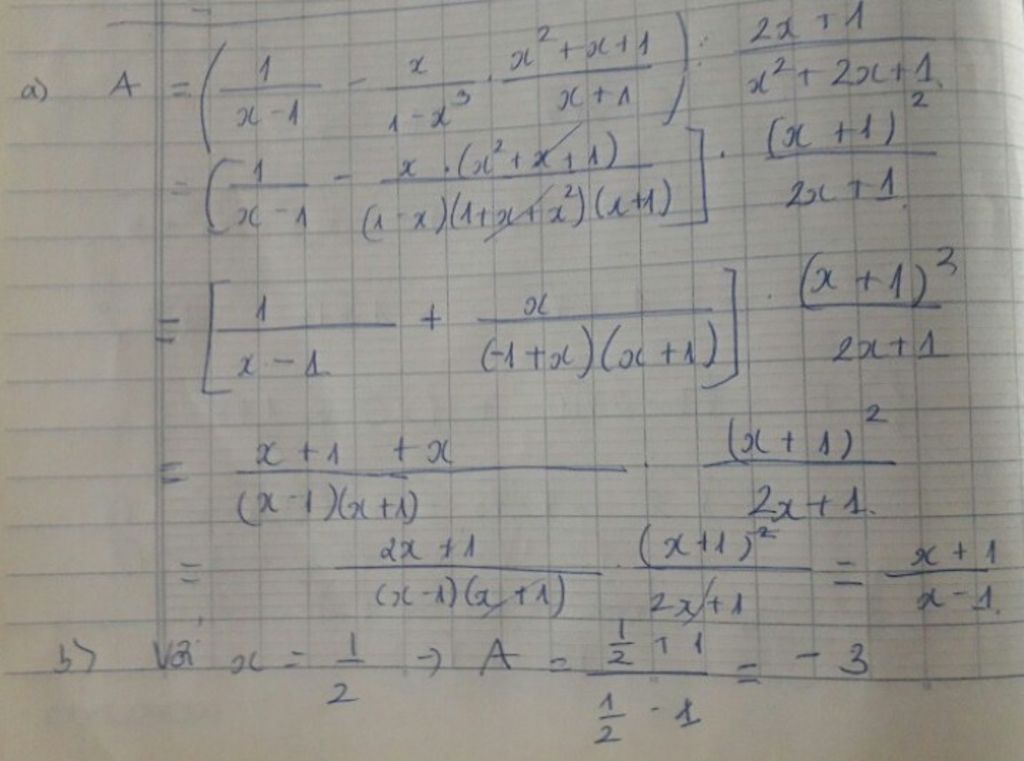 a) A = ( 1/(x-1) - x/(1-x³) · (x²+x+1)/(x+1) ) : (2x+1)/(x²+2x+1)
= [ 1/(x-1) - x·(x²+x+1)/((1-x)(1+x+x²)(x+1)) ] · (x+1)²/(2x+1)
= [ 1/(x-1) + x/((-1+x)(x+1)) ] · (x+1)³/(2x+1)
= (x+1+x)/((x-1)(x+1)) · (x+1)²/(2x+1)
= (2x+1)/((x-1)(x+1)) · (x+1)²/(2x+1) = (x+1)/(x-1)
b) Với x = 1/2 → A = (1/2+1)/(1/2-1) = -3